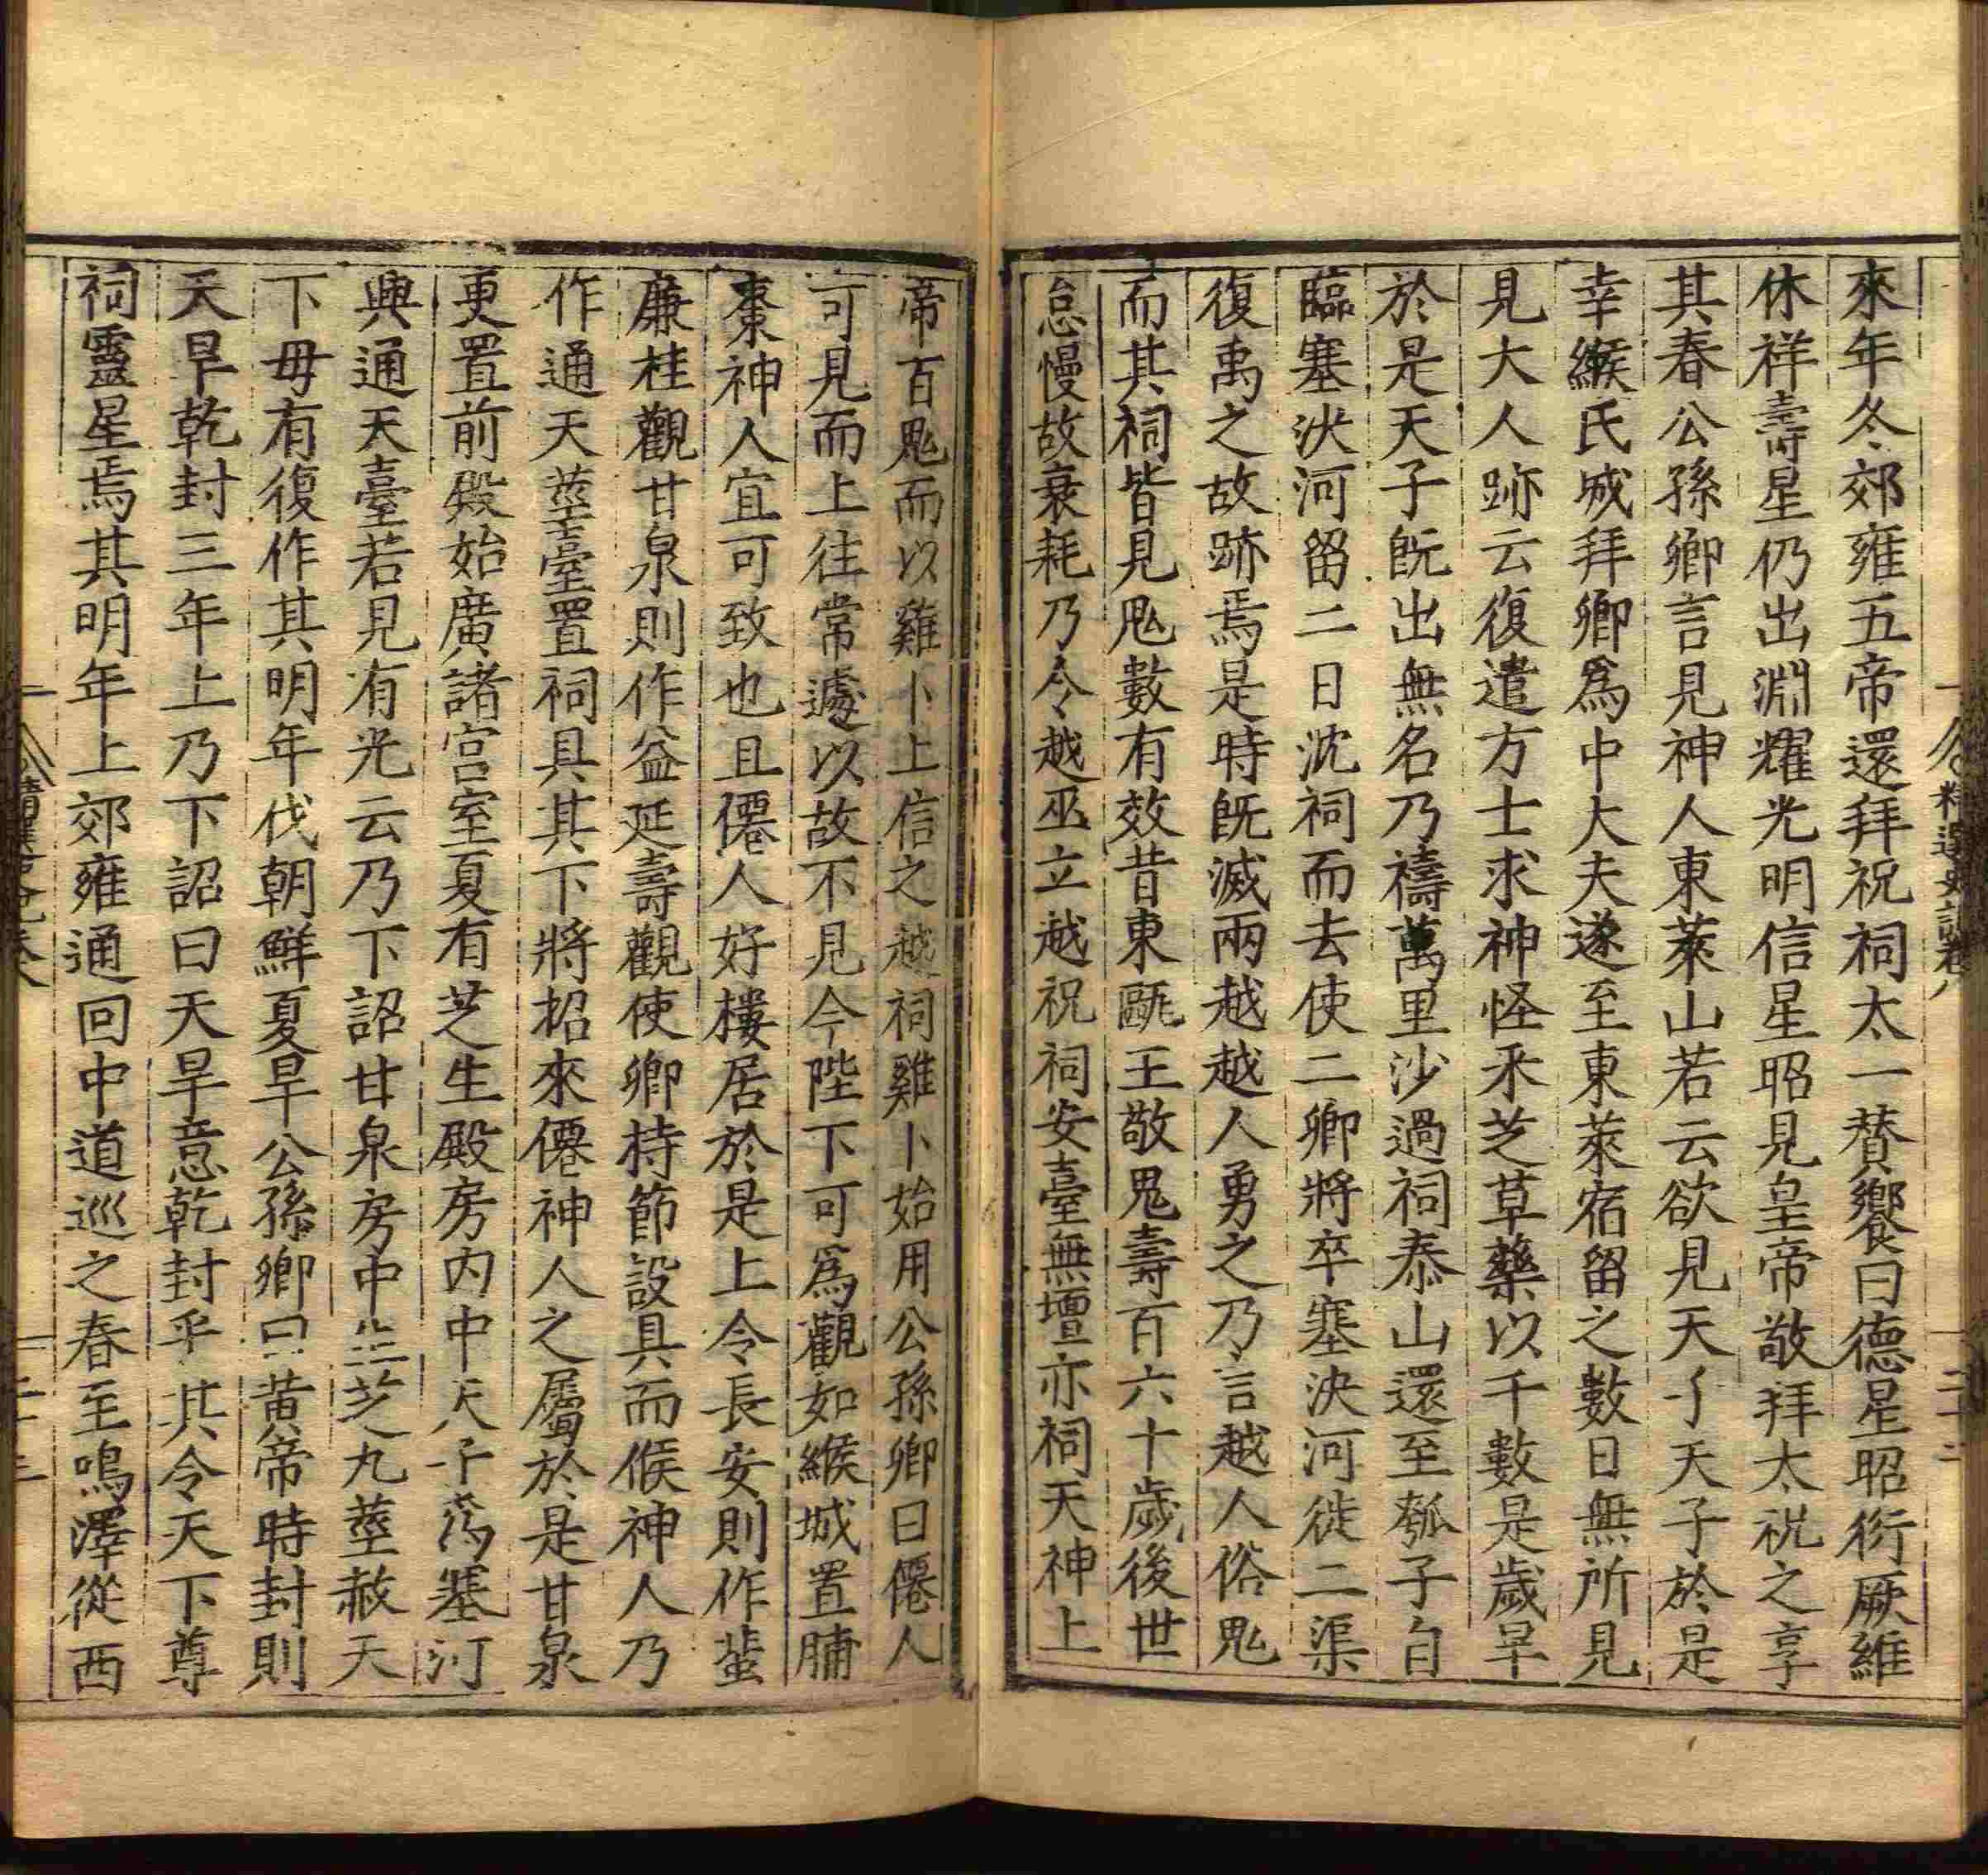 來年冬郊雍五帝還拜祝祠太一賛饗曰德星昭衍厥維
休祥壽星仍出淵耀光明信星昭見皇帝敬拜太祝之享
其春公孫卿言見神人東萊山若云欲見天子天子於是
幸緱氏城拜卿爲中大夫遂至東萊宿留之數日無所見
見大人跡云復遣方士求神怪禾芝草藥以千數是歲旱
於是天子旣出無名乃禱萬里沙過祠泰山還至瓠子自
臨塞決河留二日沈祠而去使二卿將卒塞決河徙二渠
復禹之故跡焉是時旣滅兩越越人勇之乃言越人俗鬼
而其祠皆見鬼數有效昔東甌王敬鬼壽百六十歲後世
怠慢故衰耗乃令越巫立越祝祠安臺無壇亦祠天神上
帝百鬼而以雞卜上信之越祠雞卜始用公孫卿曰僊人
可見而上往常遽以故不見今陛下可爲觀如緱城置脯
棗神人宜可致也且僊人好樓居於是上令長安則作蜚
廉桂觀甘泉則作益延壽觀使卿持節設具而候神人乃
作通天莖臺置祠具其下將招來僊神人之屬於是甘泉
更置前殿始廣諸宮室夏有芝生殿房內中天子爲塞河
興通天臺若見有光云乃下詔甘泉房中生芝九莖赦天
下毋有復作其明年伐朝鮮夏旱公孫卿曰黃帝時封則
天旱乾封三年上乃下詔曰天旱意乾封乎其令天下尊
祠靈星焉其明年上郊雍通回中道巡之春至鳴澤從西